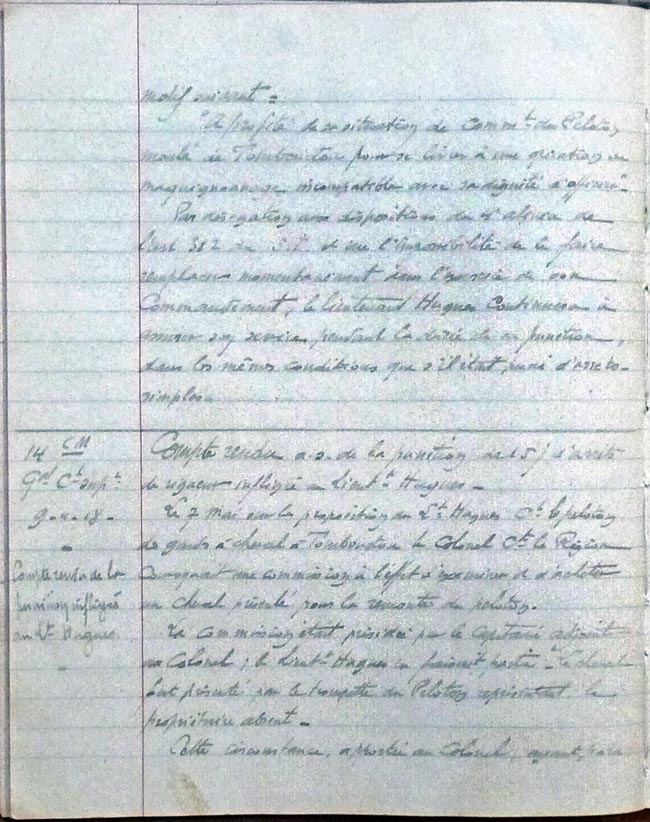 motif suivant =
"A profité de sa situation de Commt du Peloton
monté de Tombouctou pour se livrer à une opération de
maquignonnage incompatible avec sa dignité d'officier".
Par dérogation aux dispositions du alinéa de
l'art 382 du et vu l'impossibilité de le faire
remplacer momentanément dans l'exercice de son
Commandement, le lieutenant Hugues Continuera à
assurer son service pendant la durée de sa punition,
dans les mêmes conditions que s'il était puni d'arrêts
simples.
14 CM
Gal Ct supr
Compte rendu de la
punition infligée
au Lt Hugues
Compte rendu a.s. de la punition de 15 j d'arrêts
de rigueur infligée au Lieutt Hugues.
Le 7 Mai sur la proposition du Lt Hugues Ct le peloton
de gardes à cheval à Tombouctou le Colonel Ct la Région
Convoquait une commission à l'effet d'examiner et d'acheter
un cheval présenté pour la remonte du peloton.
La Commission était présidée par le Capitaine adjoint
au Colonel ; le Lieutt Hugues en faisait partie. Le cheval
fut présenté par le trompette du Peloton représentant le
propriétaire absent.
Cette circonstance, au Colonel, ayant